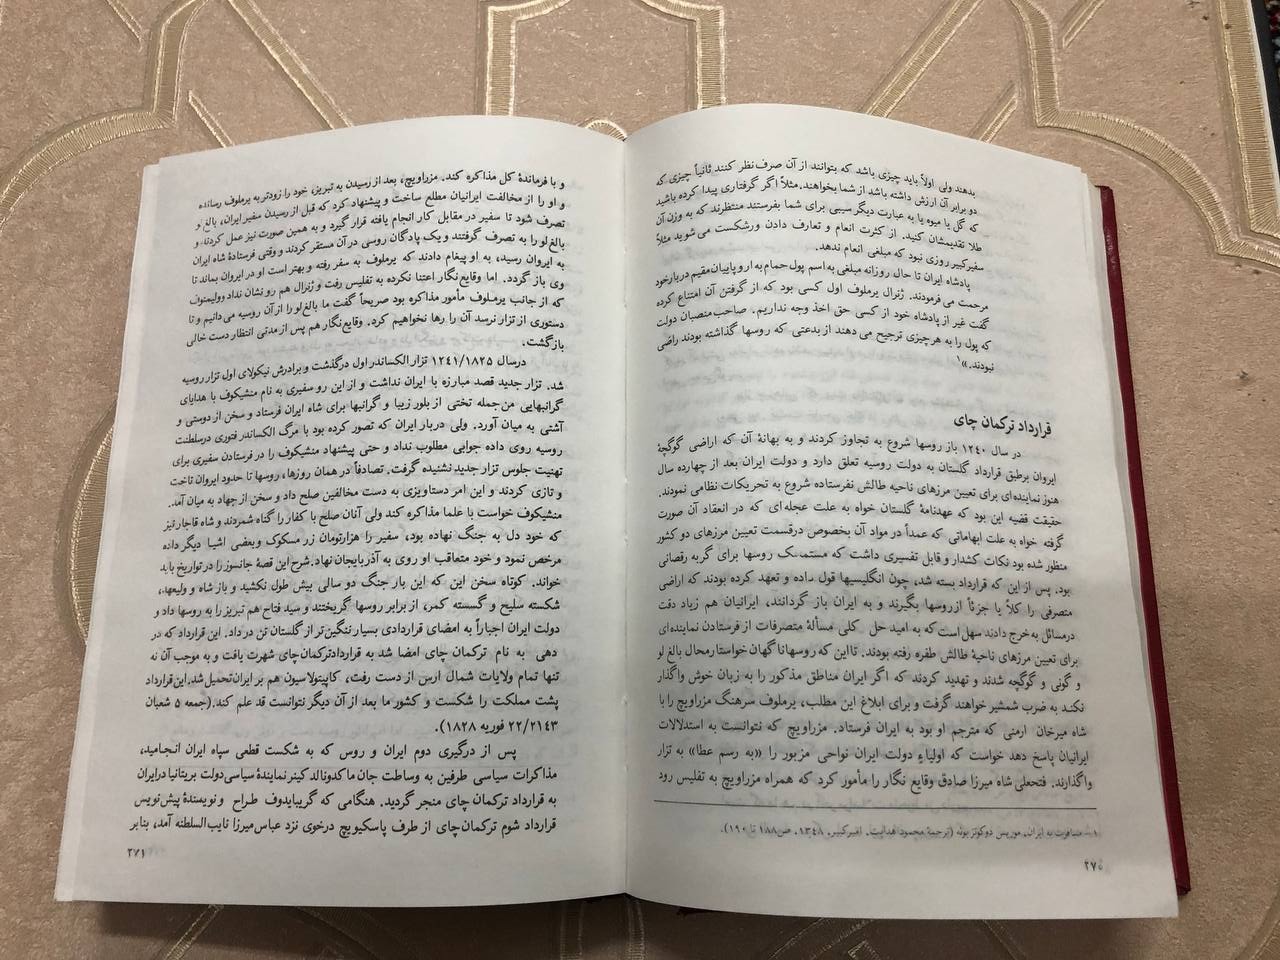 بدهند ولی اولاً باید چیزی باشد که بتوانند از آن صرف نظر کنند ثانیاً چیزی که
دو برابر آن ارزش داشته باشد از شما بخواهند. مثلاً اگر گرفتاری پیدا کرده باشید
که گل یا میوه یا به عبارت دیگر سیبی برای شما بفرستند منتظرند که به وزن آن
طلا تقدیمشان کنید. از کثرت انعام و تعارف دادن ورشکست می شوید مثلاً
سفیرکبیر روزی نبود که مبلغی انعام ندهد.
پادشاه ایران تا حال روزانه مبلغی به اسم پول حمام به اروپاییان مقیم دربار خود
مرحمت می فرمودند. ژنرال یرملوف اول کسی بود که از گرفتن آن امتناع کرده
گفت غیر از پادشاه خود از کسی حق اخذ وجه نداریم. صاحب منصبان دولت
که پول را به هر چیزی ترجیح می دهند از بدعتی که روسها گذاشته بودند راضی
نبودند.»۱
قرارداد ترکمان چای
در سال ۱۲۴۰ باز روسها شروع به تجاوز کردند و به بهانهٔ آن که اراضی گوگچهٔ
ایروان برطبق قرارداد گلستان به دولت روسیه تعلق دارد و دولت ایران بعد از چهارده سال
هنوز نماینده ای برای تعیین مرزهای ناحیه طالش نفرستاده شروع به تحریکات نظامی نمودند.
حقیقت قضیه این بود که عهدنامهٔ گلستان خواه به علت عجله ای که در انعقاد آن صورت
گرفته خواه به علت ابهاماتی که عمداً در مواد آن بخصوص درقسمت تعیین مرزهای دو کشور
منظور شده بود نکات کشدار و قابل تفسیری داشت که مستمسک روسها برای گربه رقصانی
بود. پس از این که قرارداد بسته شد، چون انگلیسیها قول داده و تعهد کرده بودند که اراضی
متصرفی را کلاً یا جزئاً ازروسها بگیرند و به ایران باز گردانند، ایرانیان هم زیاد دقت
درمسائل به خرج دادند سهل است که به امید حل کلی مسألهٔ متصرفات از فرستادن نماینده ای
برای تعیین مرزهای ناحیهٔ طالش طفره رفته بودند. تا این که روسها ناگهان خواستار محال بالغ لو
و گونی و گوگچه شدند و تهدید کردند که اگر ایران مناطق مذکور را به زبان خوش واگذار
نکند به ضرب شمشیر خواهند گرفت و برای ابلاغ این مطلب، یرملوف سرهنگ مزراویچ را با
شاه میرخان ارمنی که مترجم او بود به ایران فرستاد. مزراویچ که نتوانست به استدلالات
ایرانیان پاسخ دهد خواست که اولیاءِ دولت ایران نواحی مزبور را «به رسم عطا» به تزار
واگذارند. فتحعلی شاه میرزا صادق وقایع نگار را مأمور کرد که همراه مزراویچ به تفلیس رود
۱ – مسافرت به ایران، موریس دوکوتزبوئه (ترجمهٔ محمود هدایت. امیرکبیر. ۱۳۴۸. ص۱۸۸ تا ۱۹۰).
۲۷۰
و با فرماندهٔ کل مذاکره کند. مزراویچ، بعد از رسیدن به تبریز، خود را زودتر به یرملوف رسانده
و او را از مخالفت ایرانیان مطلع ساخت و پیشنهاد کرد که قبل از رسیدن سفیر ایران، بالغ و
تصرف شود تا سفیر در مقابل کار انجام یافته قرار گیرد و به همین صورت نیز عمل کردند و
بالغ لو را به تصرف گرفتند و یک پادگان روسی در آن مستقر کردند و وقتی فرستادهٔ شاه ایران
به ایروان رسید، به او پیغام دادند که یرملوف به سفر رفته و بهتر است او در ایروان بماند تا
وی باز گردد. اما وقایع نگار اعتنا نکرده به تفلیس رفت و ژنرال هم رو نشان نداد وولیمنوف
که از جانب یرملوف مأمور مذاکره بود صریحاً گفت ما بالغ لو را از آن روسیه می دانیم و تا
دستوری از تزار نرسد آن را رها نخواهیم کرد. وقایع نگار هم پس از مدتی انتظار دست خالی
بازگشت.
درسال ۱۲۴۱/۱۸۲۵ تزار الکساندر اول درگذشت و برادرش نیکولای اول تزار روسیه
شد. تزار جدید قصد مبارزه با ایران نداشت و از این رو سفیری به نام منشیکوف با هدایای
گرانبهایی من جمله تختی از بلور زیبا و گرانبها برای شاه ایران فرستاد و سخن از دوستی و
آشتی به میان آورد. ولی دربار ایران که تصور کرده بود با مرگ الکساندر فتوری درسلطنت
روسیه روی داده جوابی مطلوب نداد و حتی پیشنهاد منشیکوف را در فرستادن سفیری برای
تهنیت جلوس تزار جدید نشنیده گرفت. تصادفاً در همان روزها، روسها تا حدود ایروان تاخت
و تازی کردند و این امر دستاویزی به دست مخالفین صلح داد و سخن از جهاد به میان آمد.
منشیکوف خواست با علما مذاکره کند ولی آنان صلح با کفار را گناه شمردند و شاه قاجار نیز
که خود دل به جنگ نهاده بود، سفیر را هزارتومان زر مسکوک وبعضی اشیا دیگر داده
مرخص نمود و خود متعاقب او روی به آذربایجان نهاد. شرح این قصهٔ جانسوز را در تواریخ باید
خواند. کوتاه سخن این که این بار جنگ دو سالی بیش طول نکشید و باز شاه و ولیعهد،
شکسته سلیح و گسسته کمر، از برابر روسها گریختند و سید فتاح هم تبریز را به روسها داد و
دولت ایران اجباراً به امضای قراردادی بسیار ننگین تر از گلستان تن در داد. این قرارداد که در
دهی به نام ترکمان چای امضا شد به قراردادترکمان چای شهرت یافت و به موجب آن نه
تنها تمام ولایات شمال ارس از دست رفت، کاپیتولاسیون هم بر ایران تحمیل شد. این قرارداد
پشت مملکت را شکست و کشور ما بعد از آن دیگر نتوانست قد علم کند. (جمعه ۵ شعبان
۲۲/۲۱۴۳ فوریه ۱۸۲۸).
پس از درگیری دوم ایران و روس که به شکست قطعی سپاه ایران انجامید،
مذاکرات سیاسی طرفین به وساطت جان ماکدونالد کینر نمایندهٔ سیاسی دولت بریتانیا درایران
به قرارداد ترکمان چای منجر گردید. هنگامی که گریبایدوف طراح و نویسندهٔ پیش نویس
قرارداد شوم ترکمان چای از طرف پاسکیویچ درخوی نزد عباس میرزا نایب السلطنه آمد، بنابر
۲۷۱